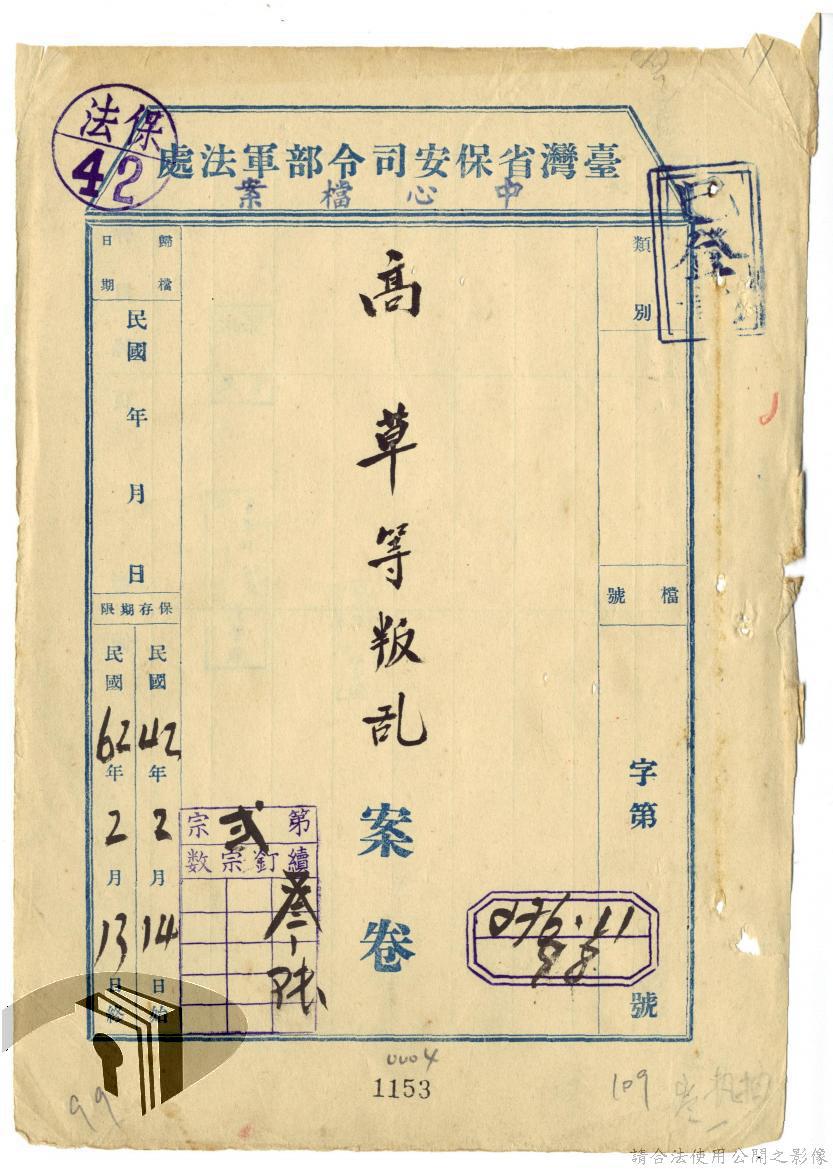 保法
42
臺灣省保安司令部軍法處
中心檔案
已登
類別
檔號
字第
號
高草等叛乱
案卷
第弍宗
續釘宗数
叁
歸檔日期
民國 年 月 日
保存期限
民國42年2月14日始
民國62年2月13日終
0004
1153
99
109
請合法使用公開之影像